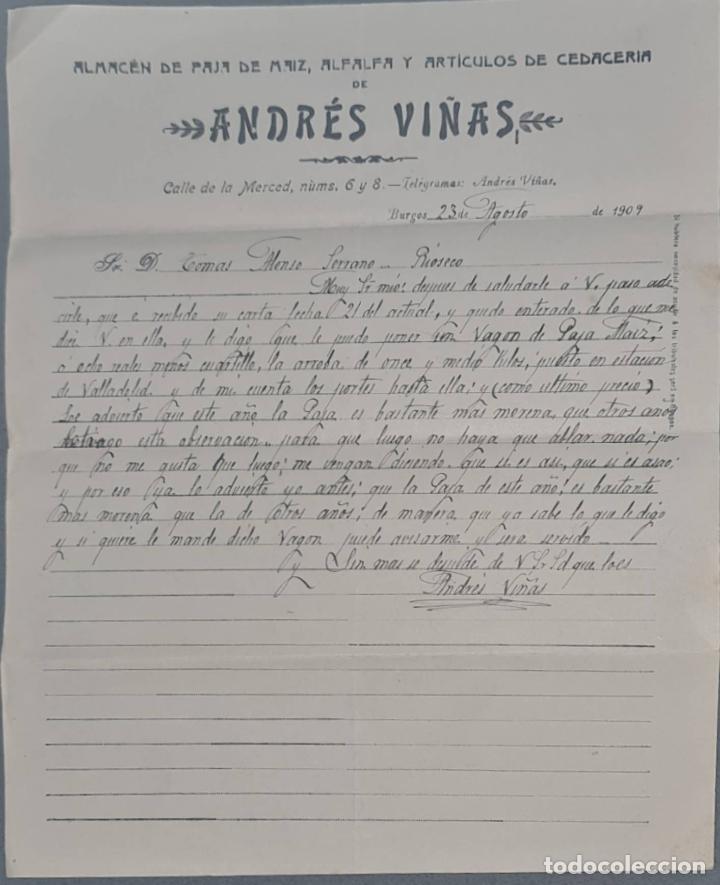 ALMACÉN DE PAJA DE MAIZ, ALFALFA Y ARTÍCULOS DE CEDACERIA
DE
ANDRÉS VIÑAS
Calle de la Merced, núms. 6 y 8.—Telégramas: Andrés Viñas.
Burgos 23 de Agosto de 1909
Sr. D. Tomas Alonso Serrano Rioseco
Muy Sr mio: despues de saludarle á V. paso ade
cirle, que é recibido su carta fecha 21 del actual, y quedo enterado, de lo que me
dici V. en ella, y le digo que le puedo poner un Vagon de Paja Maiz;
á ocho reales menos cuartillo, la arroba de once y medio kilos, puesto en estacion
de Valladolid y de mi cuenta los portes hasta ella; y (como ultimo precio)
Loe advierto que este año la Paja es bastante mas morena, que otros años
esta observacion para que luego no haya que ablar nada; por
que no me gusta que luego; me vengan diciendo que si es asi, que si es asao;
y por eso ya lo advierto yo antes; que la Paja de este año; es bastante
mas morena que la de otros años; de manera que ya sabe lo que le digo
y si quiere le mande dicho Vagon puede avisarme y sera servido
y Sin mas se despide de V que lo es
Andrés Viñas
todocoleccion